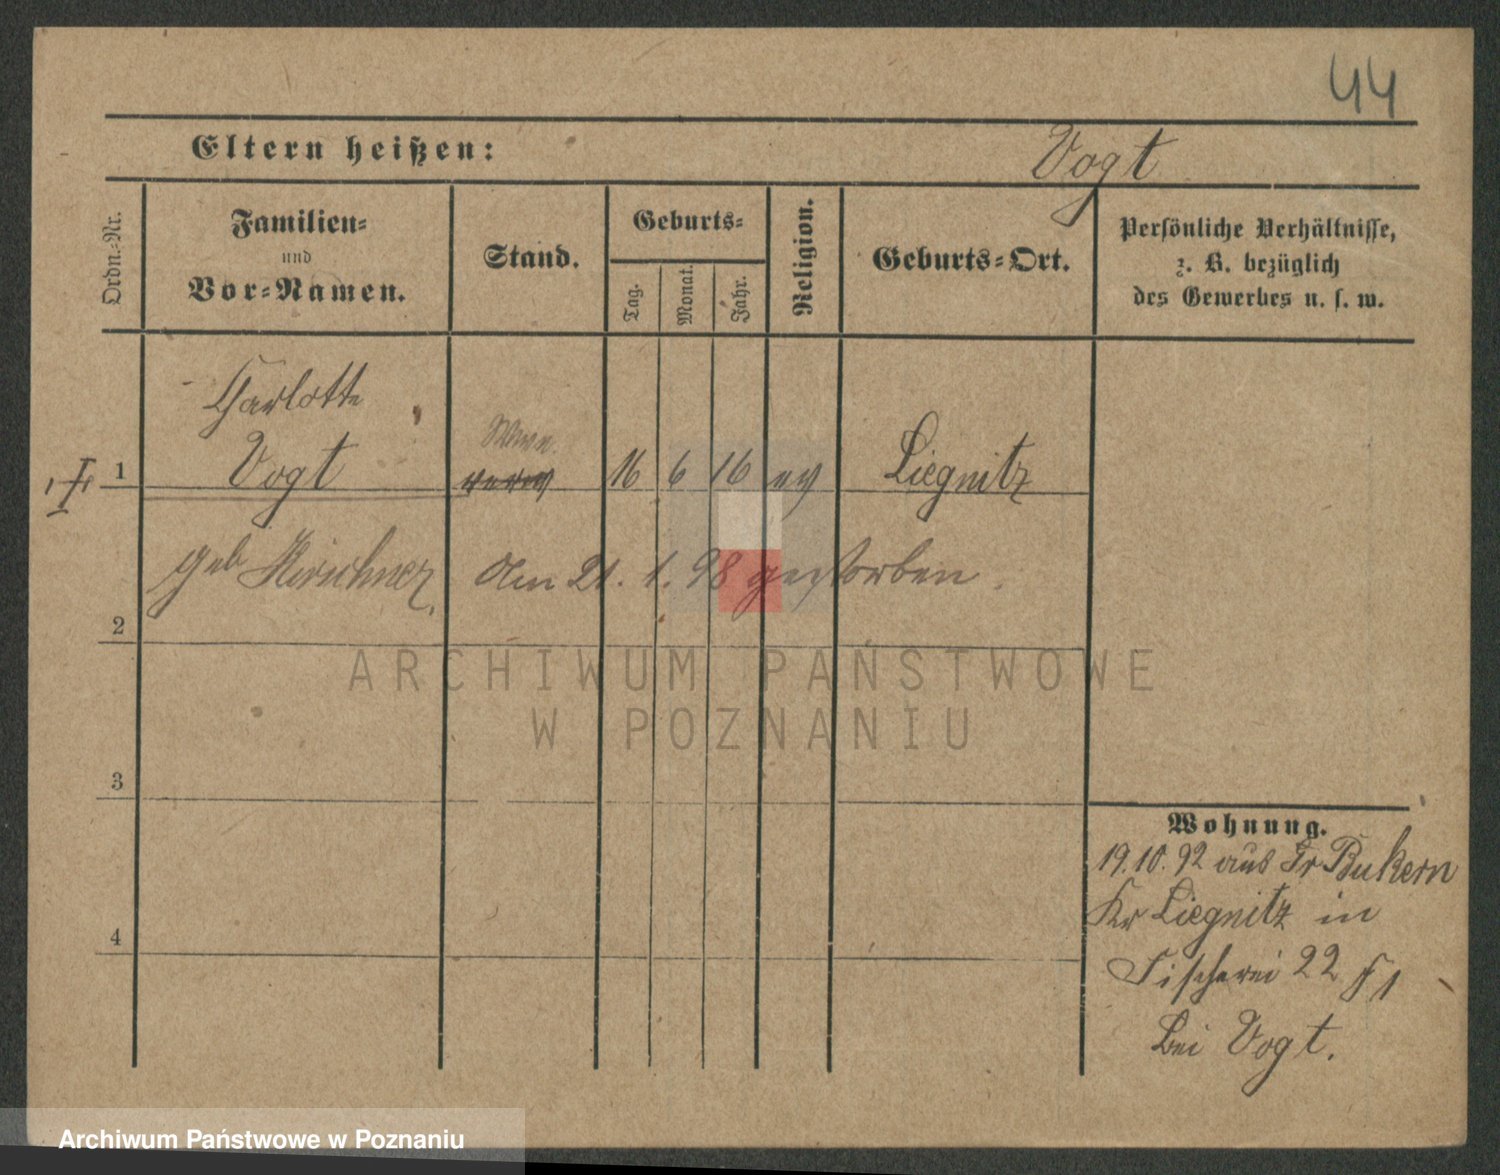 44
Eltern heißen:
Vogt
Ordn.-Nr.
Familien-
und
Vor-Namen.
Stand.
Geburts-
Tag.
Monat.
Jahr.
Religion.
Geburts-Ort.
Persönliche Verhältnisse,
z. B. bezüglich
des Gewerbes u. s. w.
Charlotte
1 Vogt Wwe. 16 6 16 ev Liegnitz
geb Kirschner. Am 21. 1. 98 gestorben.
2
ARCHIWUM PAŃSTWOWE
W POZNANIU
3
Wohnung.
19.10.92 aus Gr Bukern
Kr Liegnitz in
4
Fischerei 22
bei Vogt.
Archiwum Państwowe w Poznaniu